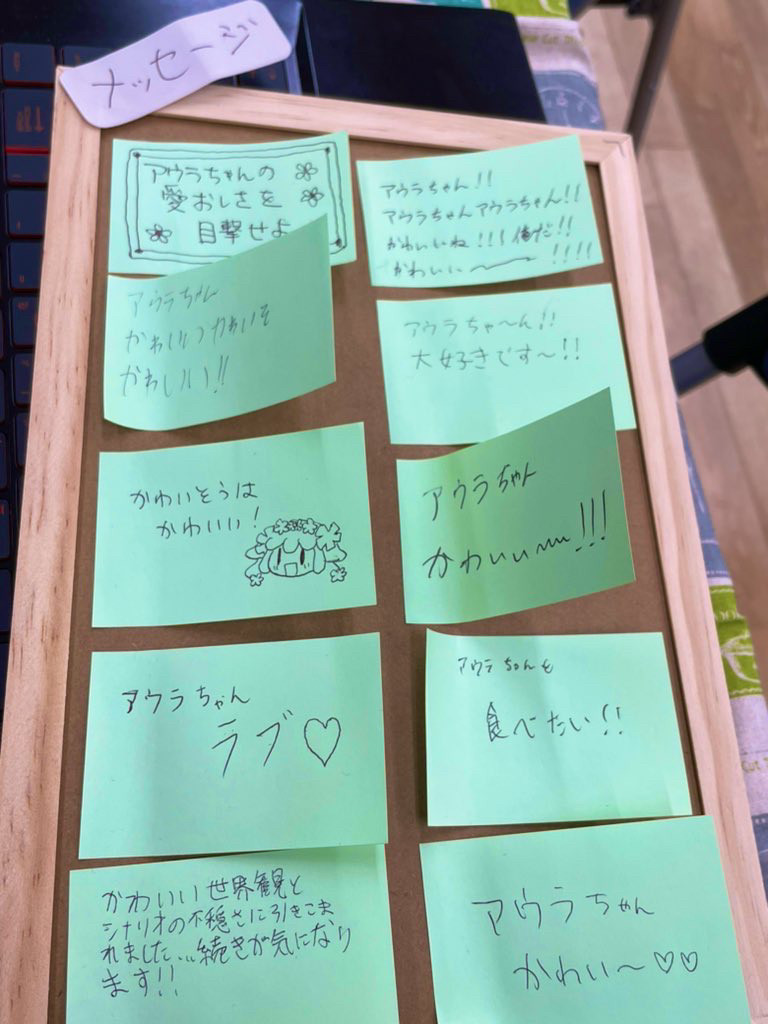 メッセージ
アウラちゃんの
愛おしさを
目撃せよ
アウラちゃん!!
アウラちゃんアウラちゃん!!
かわいいね!!! 俺だ!!
かわいい〜 !!!!
アウラちゃん
かわいいかわいそ
かわいい!!
アウラちゃ〜ん!!
大好きです〜!!
かわいそうは
かわいい!
アウラちゃん
かわいい〜!!!
アウラちゃん
ラブ♡
アウラちゃんを
食べたい!!
かわいい世界観と
シナリオの不穏さに引きこま
れました...続きが気になり
ます!!
アウラちゃん
かわい〜♡♡